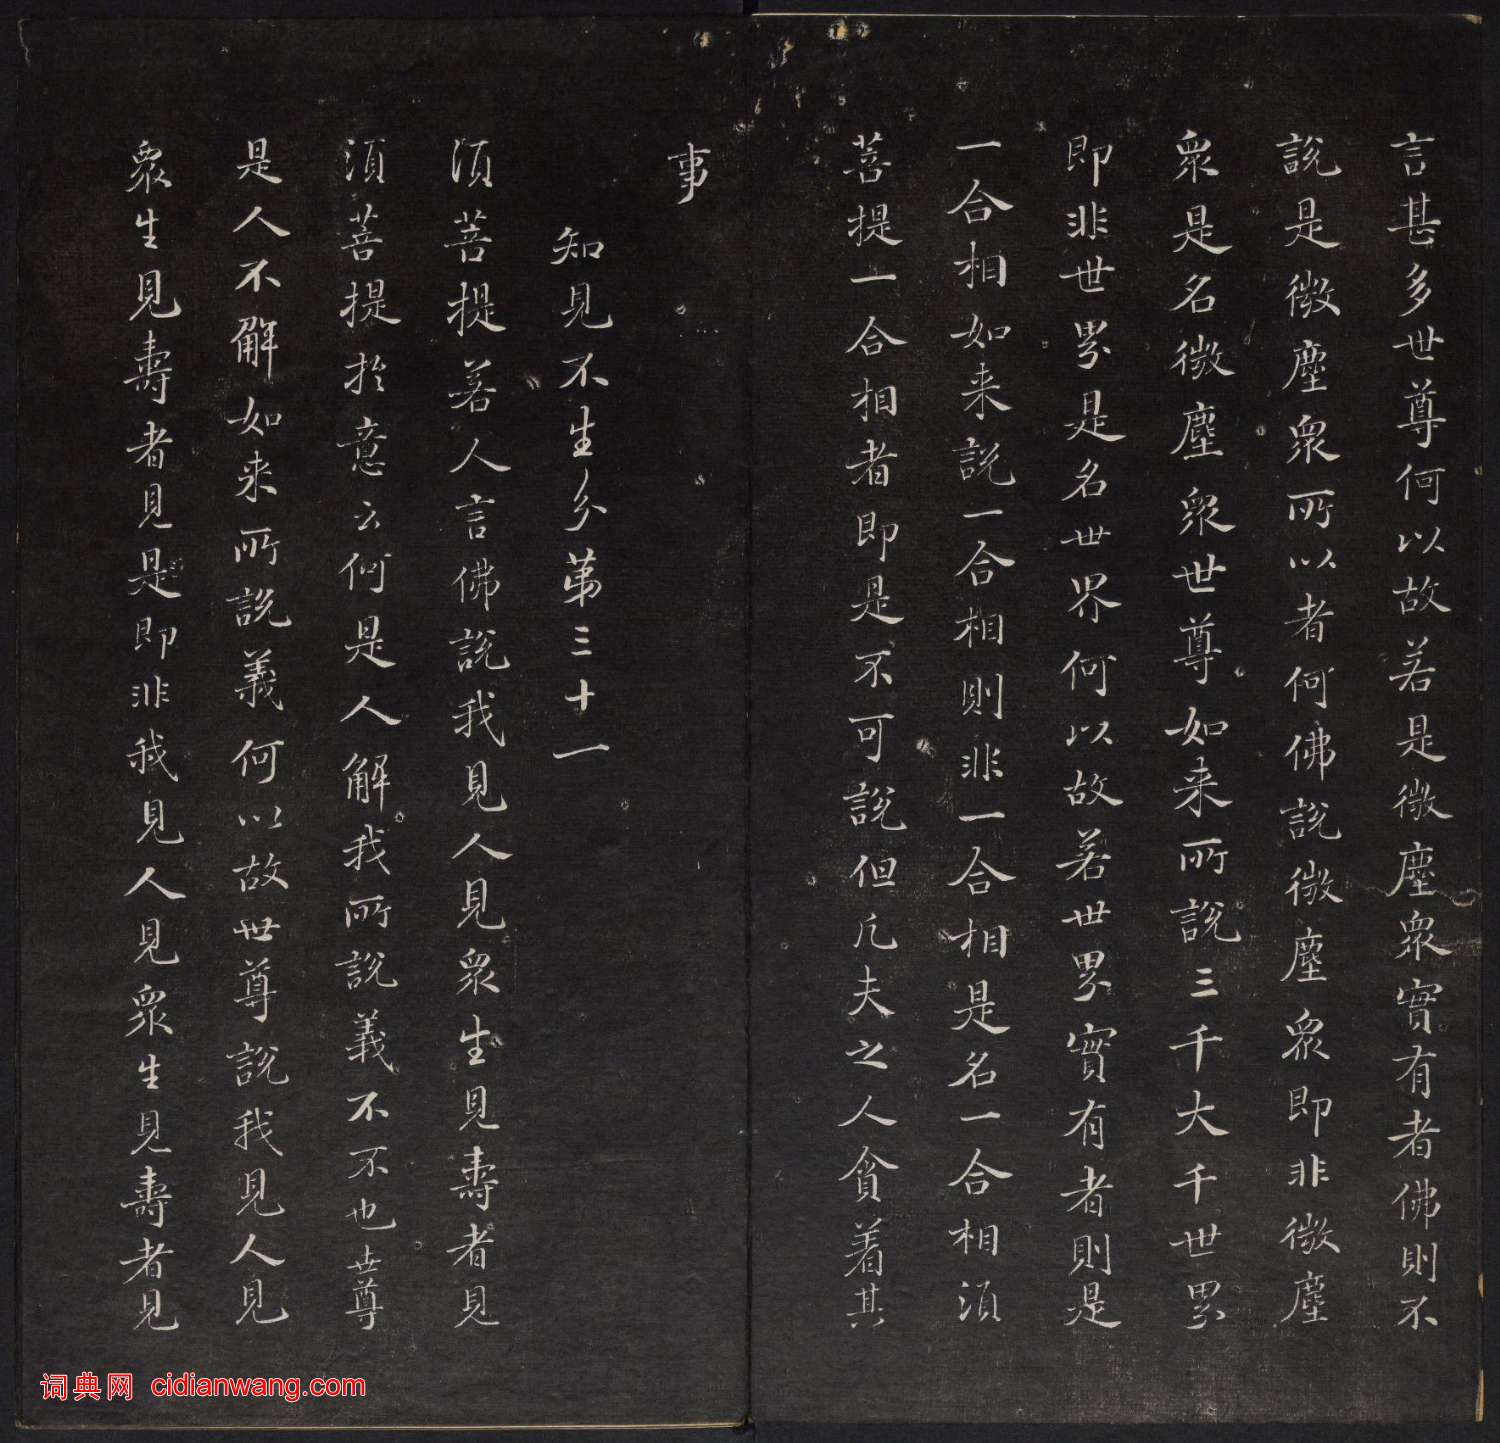 言甚多世尊何以故若是微塵衆實有者佛則不
說是微塵衆所以者何佛說微塵衆即非微塵
衆是名微塵衆世尊如来所說三千大千世界
即非世界是名世界何以故若世界實有者則是
一合相如来說一合相則非一合相是名一合相須
菩提一合相者即是不可說但凡夫之人貪着其
事
知見不生分第三十一
須菩提若人言佛說我見人見衆生見壽者見
須菩提扵意云何是人解我所說義不不也世尊
是人不解如来所說義何以故世尊說我見人見
衆生見壽者見是即非我見人見衆生見壽者見
词典网 cidianwang.com